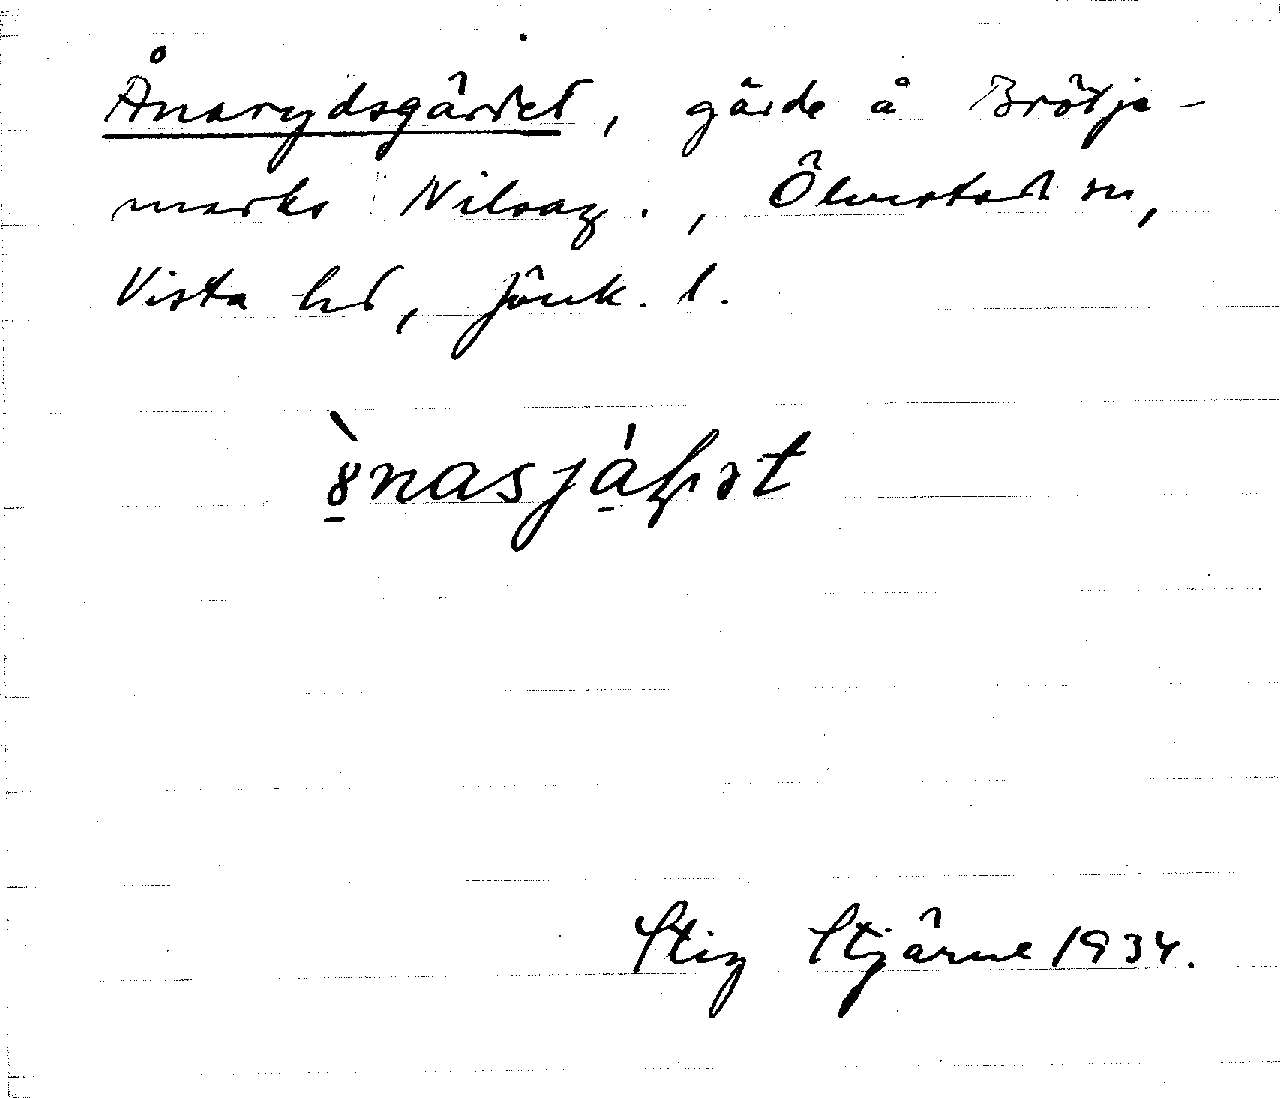 Ånarydsgärdet, gärde å Brötje-
marks Nilsag., Ölmstad sn,
Vista hd, Jönk. l.
Stig Stjärne 1934.